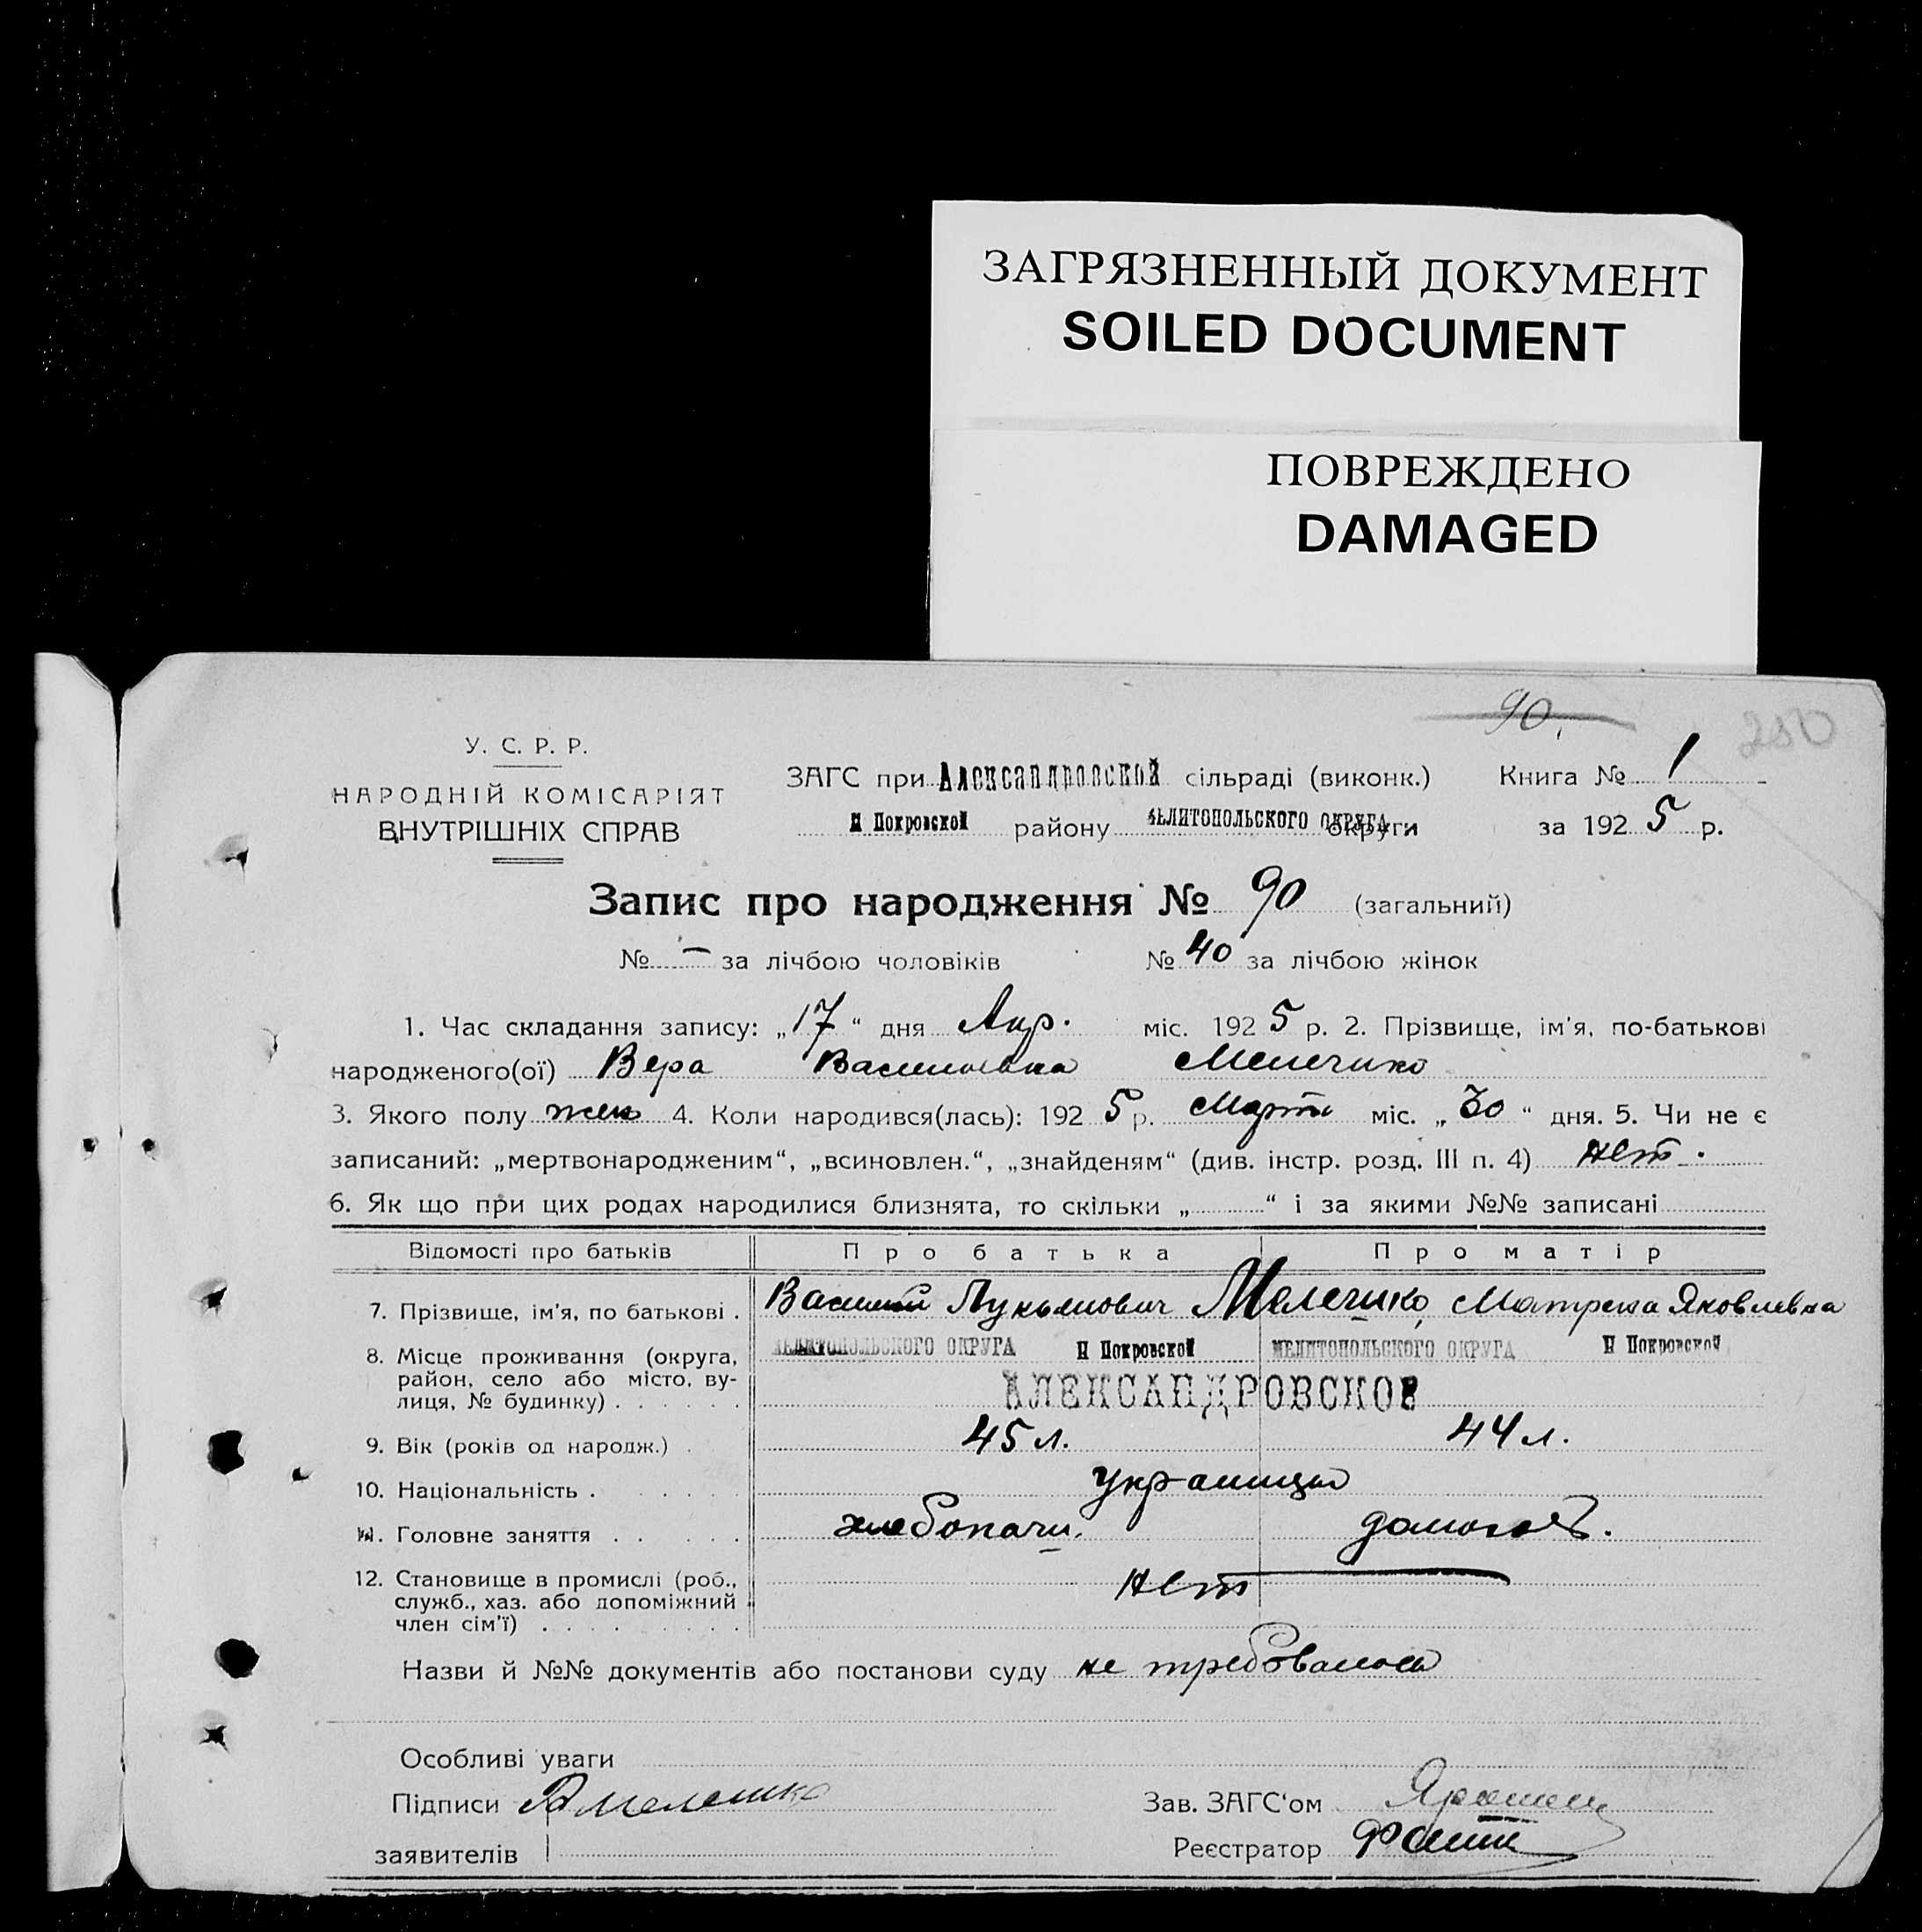 ЗАГРЯЗНЕННЫЙ ДОКУМЕНТ
SOILED DOCUMENT
ПОВРЕЖДЕНО
DAMAGED
90.
250
У. С. Р. Р.
НАРОДНІЙ КОМІСАРІЯТ
ВНУТРІШНІХ СПРАВ
ЗАГС при Александровской сільраді (виконк.) Книга № 1
Н Покровской району МЕЛИТОПОЛЬСКОГО ОКРУГА округи за 1925 р.
Запис про народження № 90 (загальний)
№ — за лічбою чоловіків № 40 за лічбою жінок
1. Час складання запису: „17“ дня Апр. міс. 1925 р. 2. Прізвище, ім'я, по-батькові
народженого(ої) Вера Васильевна
3. Якого полу жен 4. Коли народився(лась): 1925 р. Марта міс. „30“ дня. 5. Чи не є
записаний: „мертвонародженим“, „всиновлен.“, „знайденям“ (див. інстр. розд. III п. 4) нет.
6. Як що при цих родах народилися близнята, то скільки „ “ і за якими №№ записані
Відомості про батьків Про батька Про матір
7. Прізвище, ім'я, по батькові . Василий Лукьянович Матрена Яковлевна
8. Місце проживання (округа, МЕЛИТОПОЛЬСКОГО ОКРУГА Н Покровской МЕЛИТОПОЛЬСКОГО ОКРУГА Н Покровской
район, село або місто, ву-
лиця, № будинку) . . . . . . АЛЕКСАНДРОВСКОЕ
9. Вік (років од народж.) . 45 л. 44 л.
10. Національність . . . . . . украинцы
11. Головне заняття . . . . . хлебопаш. домохоз.
12. Становище в промислі (роб., нет
служб., хаз. або допоміжний
член сім'ї) . . . . . . . .
Назви й №№ документів або постанови суду не требовалось
Особливі уваги
Підписи
заявителів
Зав. ЗАГС'ом
Реєстратор